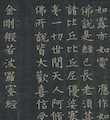 如露亦如電應作
佛說是經已長老須
諸比丘比丘尼優婆塞
夷一切世間天人阿修
佛所說皆大歡喜信
金剛般若波羅蜜經